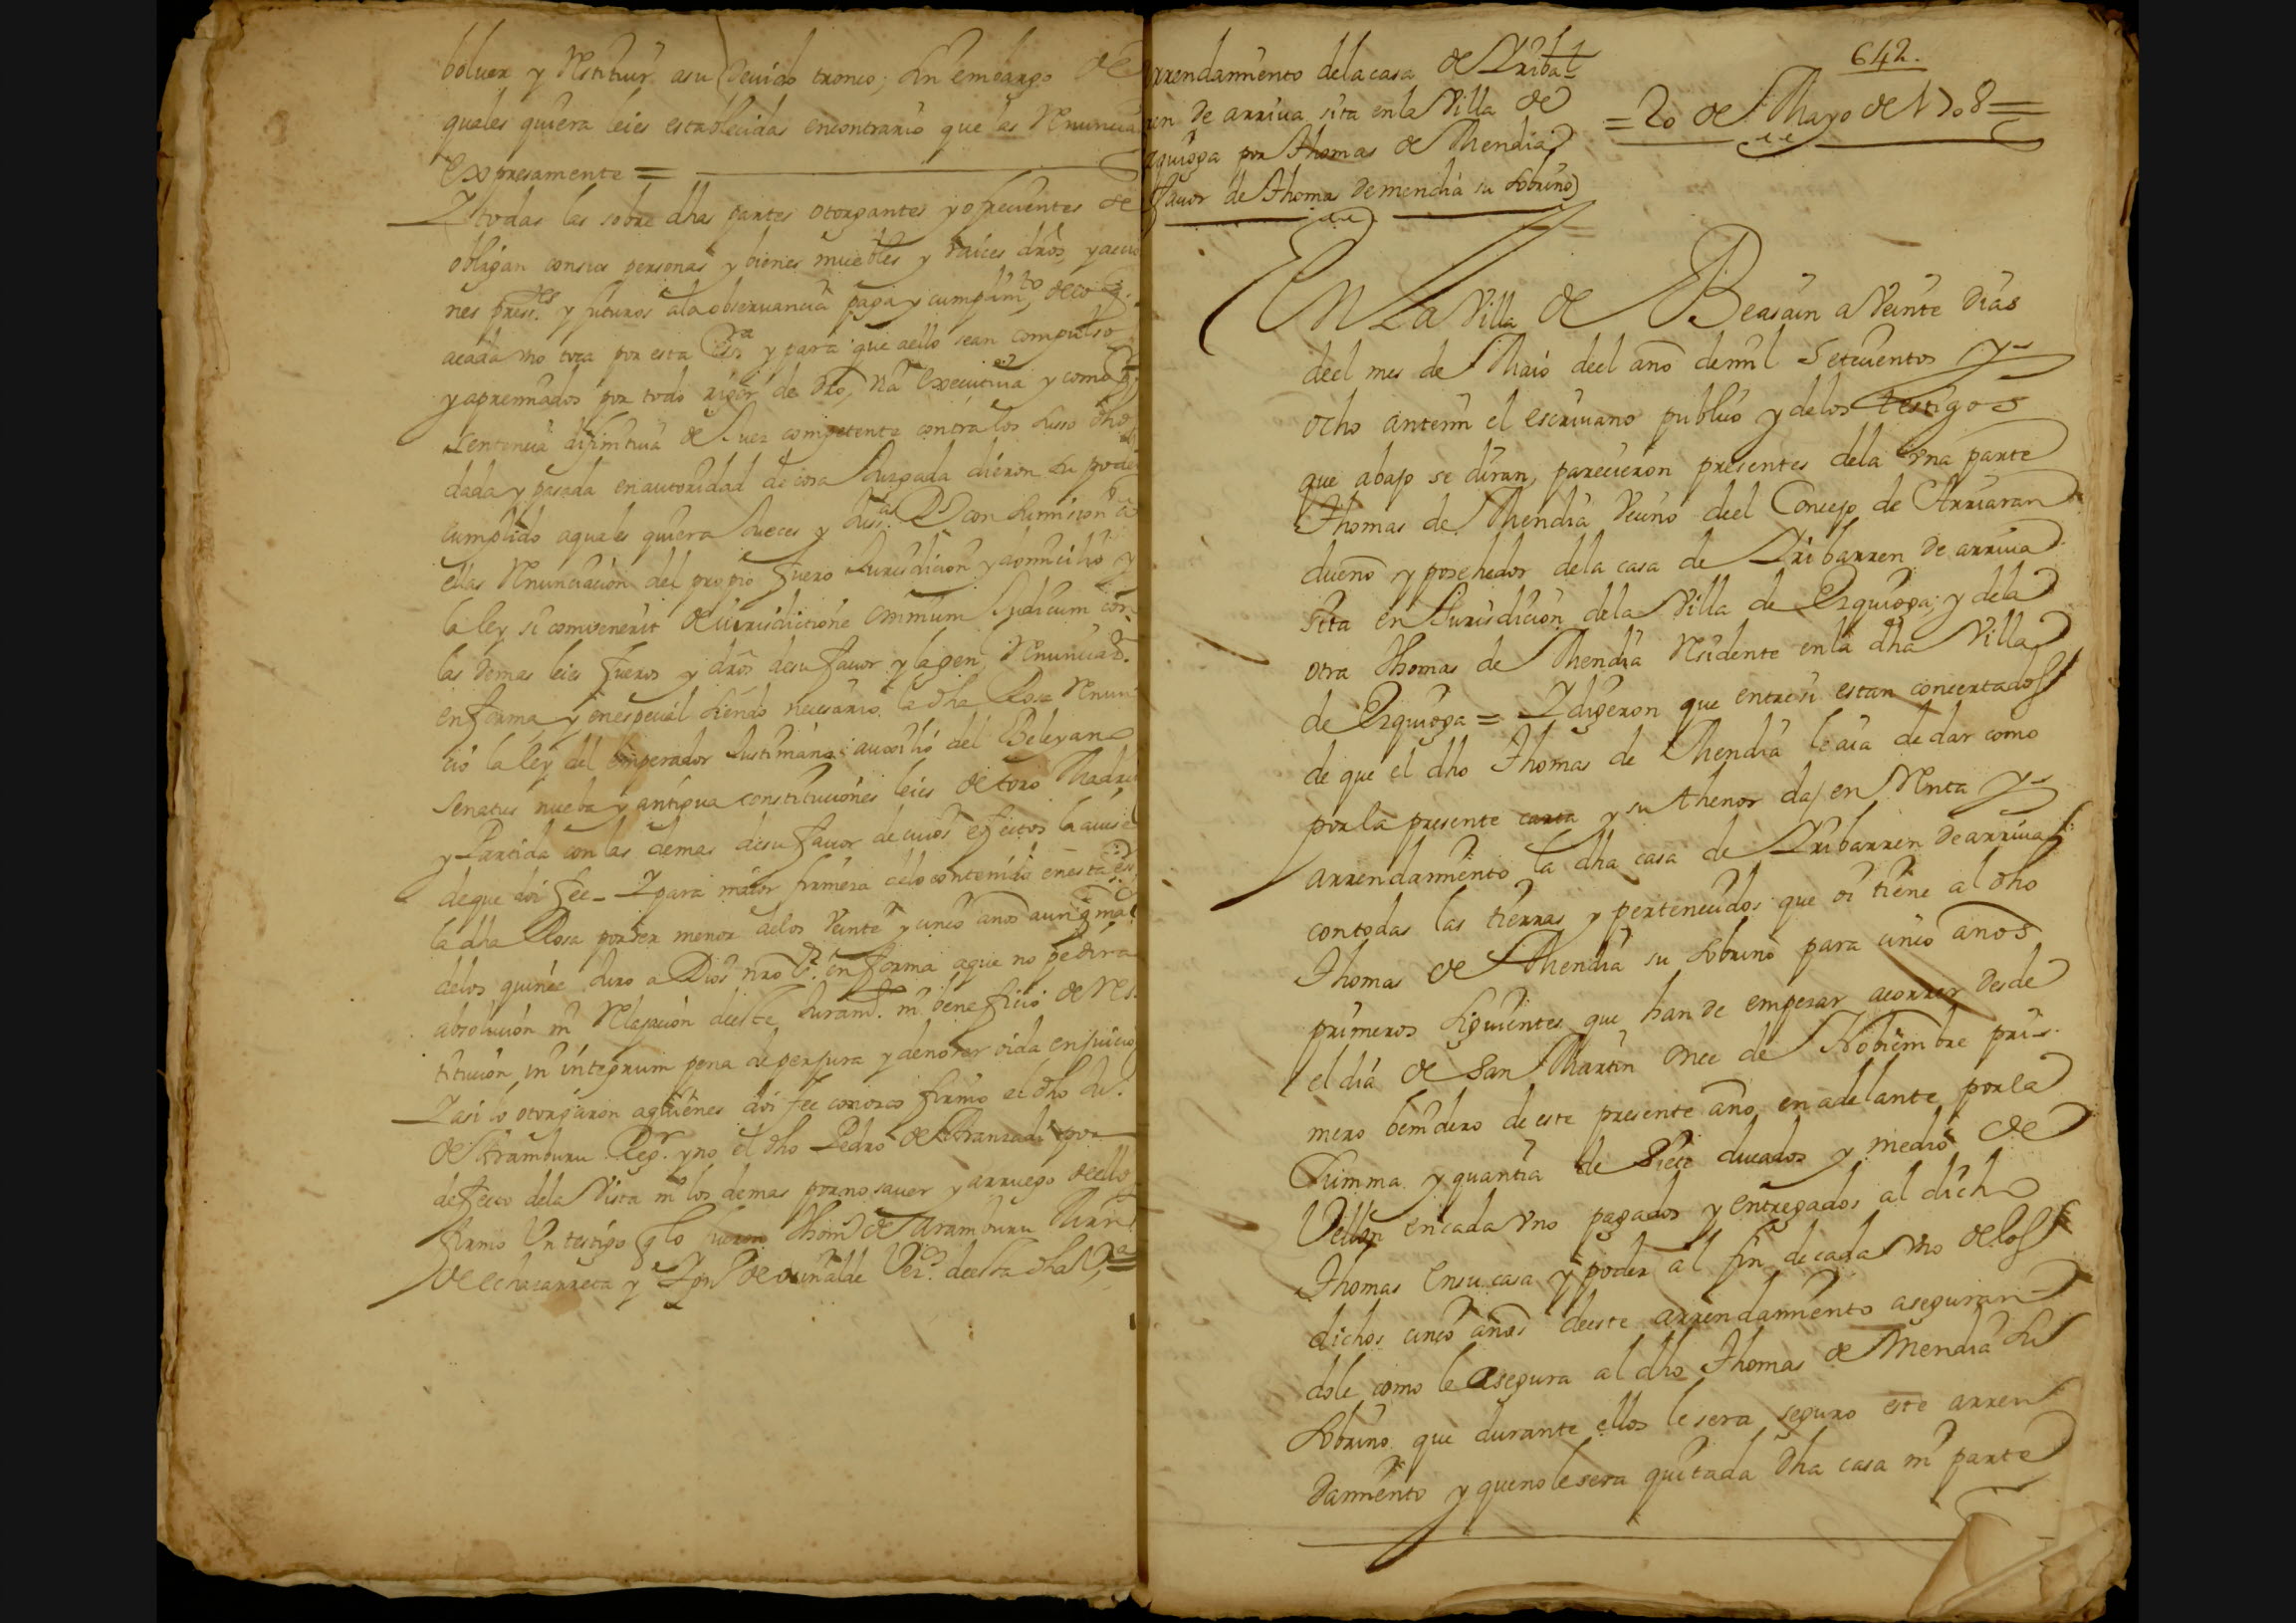 boluer y Restituir asu deuido tronco, sin embargo de
quales quiera leies establecidas encontrario que las Renuncia
expresamente =
Y todas las sobre dhas partes otorgantes y ofrecientes se
obligan consus personas y bienes muebles y raices dros, y accio
nes press.tes y futuros ala obseruancia paga y cumplim.to de lo q.
acada vno toca por esta Ess.ra y para que aello sean compulsos
y apremiados por todo rigor de dro, via executiua y como p.r
sentencia difinitiua de Juez competente contra los susso dhos
dada y pasada en autoridad de cosa Juzgada dieron su poder
cumplido aquales quiera Jueces y Juss.as con sumision a
ellas Renunciacion del propio fuero Jurisdicion y domicilio y
la ley si convenerit de iurisdictione omnium Judicum con
las demas leies fueros y dros desu fauor y la gen.l Renunciaz.n
en forma, y en especial siendo necesario la dha Rosa Renun
cio la ley del emperador Justiniano auxilio del Beleyano
Senatus nueba y antigua constituciones leies de toro Madrid
y Partida con las demas desu fauor de cuios efectos la auise
deque doi fee = Y para maior firmeza delo contenido en esta ess.ra
la dha Rosa por ser menor delos veinte y cinco años aunq. maior
delos quince Juro a Dios nro S.r en forma aque no pedira
absolucion ni Relajacion deeste Juram.to ni beneficio de Res
titucion in integrum pena de perjura y deno ser oida en juicio
Y asi lo otorgaron aquienes doi fee conozco firmo el dho Ju.o
de Aramburu Reg.r y no el dho Pedro de por
defecto dela vista ni los demas porno sauer y arruego deello
firmo Vn testigo q lo fueron Thomas de Aramburu Martin
de echacarreta y de Vez.os deesta dha V.a =
arrendamiento dela casa de Vribar
ren de arriua sita en la Villa de
Ezquioga por Thomas de Mendia
fauor de Thomas de mendia su sobrino
642.
= 20 de Mayo de 1708 =
En La Villa de Beasain a Veinte dias
deel mes de Maio deel año demil Setecientos y
ocho antemi el escriuano publico y delos testigos
que abajo se diran, parecieron presentes dela vna parte
Thomas de Mendia Vecino deel Concejo de Arriaran
dueño y posehedor dela casa de Vribarren de arriua
sita en Jurisdicion dela Villa de Ezquioga, y dela
otra Thomas de Mendia Residente enla dha Villa
de Ezquioga = Y digeron que entresi estan concertados
de que el dho Thomas de Mendia le aia de dar como
porla presente carta y su thenor da, en Renta y
arrendamiento la dha casa de Vribarren de arriua
contodas las tierras y pertenecidos que oi tiene al dho
Thomas de Mendia su sobrino para cinco años
primeros siguientes que han de empezar acorrer desde
el dia de San Martin once de Nobiembre pri=
mero benidero de este presente año en adelante por la
Summa y quantia de siete ducados y medio de
Vellon encada vno pagados y entregados al dicho
Thomas ensu casa y poder al fin de cada vno de los
dichos cinco años deeste arrendamiento aseguran
dole como le asegura al dho Thomas de Mendia su
sobrino que durante ellos le sera seguro este arren
damiento y que no le sera quitada dha casa ni parte